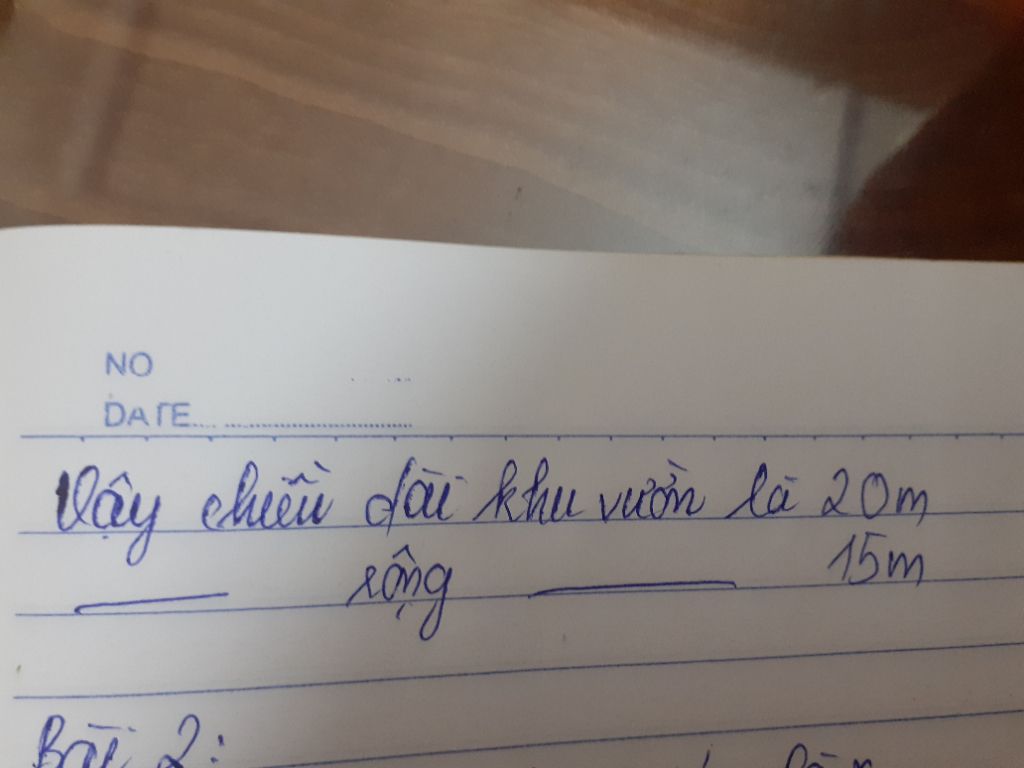 NO
DATE
Vậy chiều dài khu vườn là 20m
rộng 15m
Bài 2: